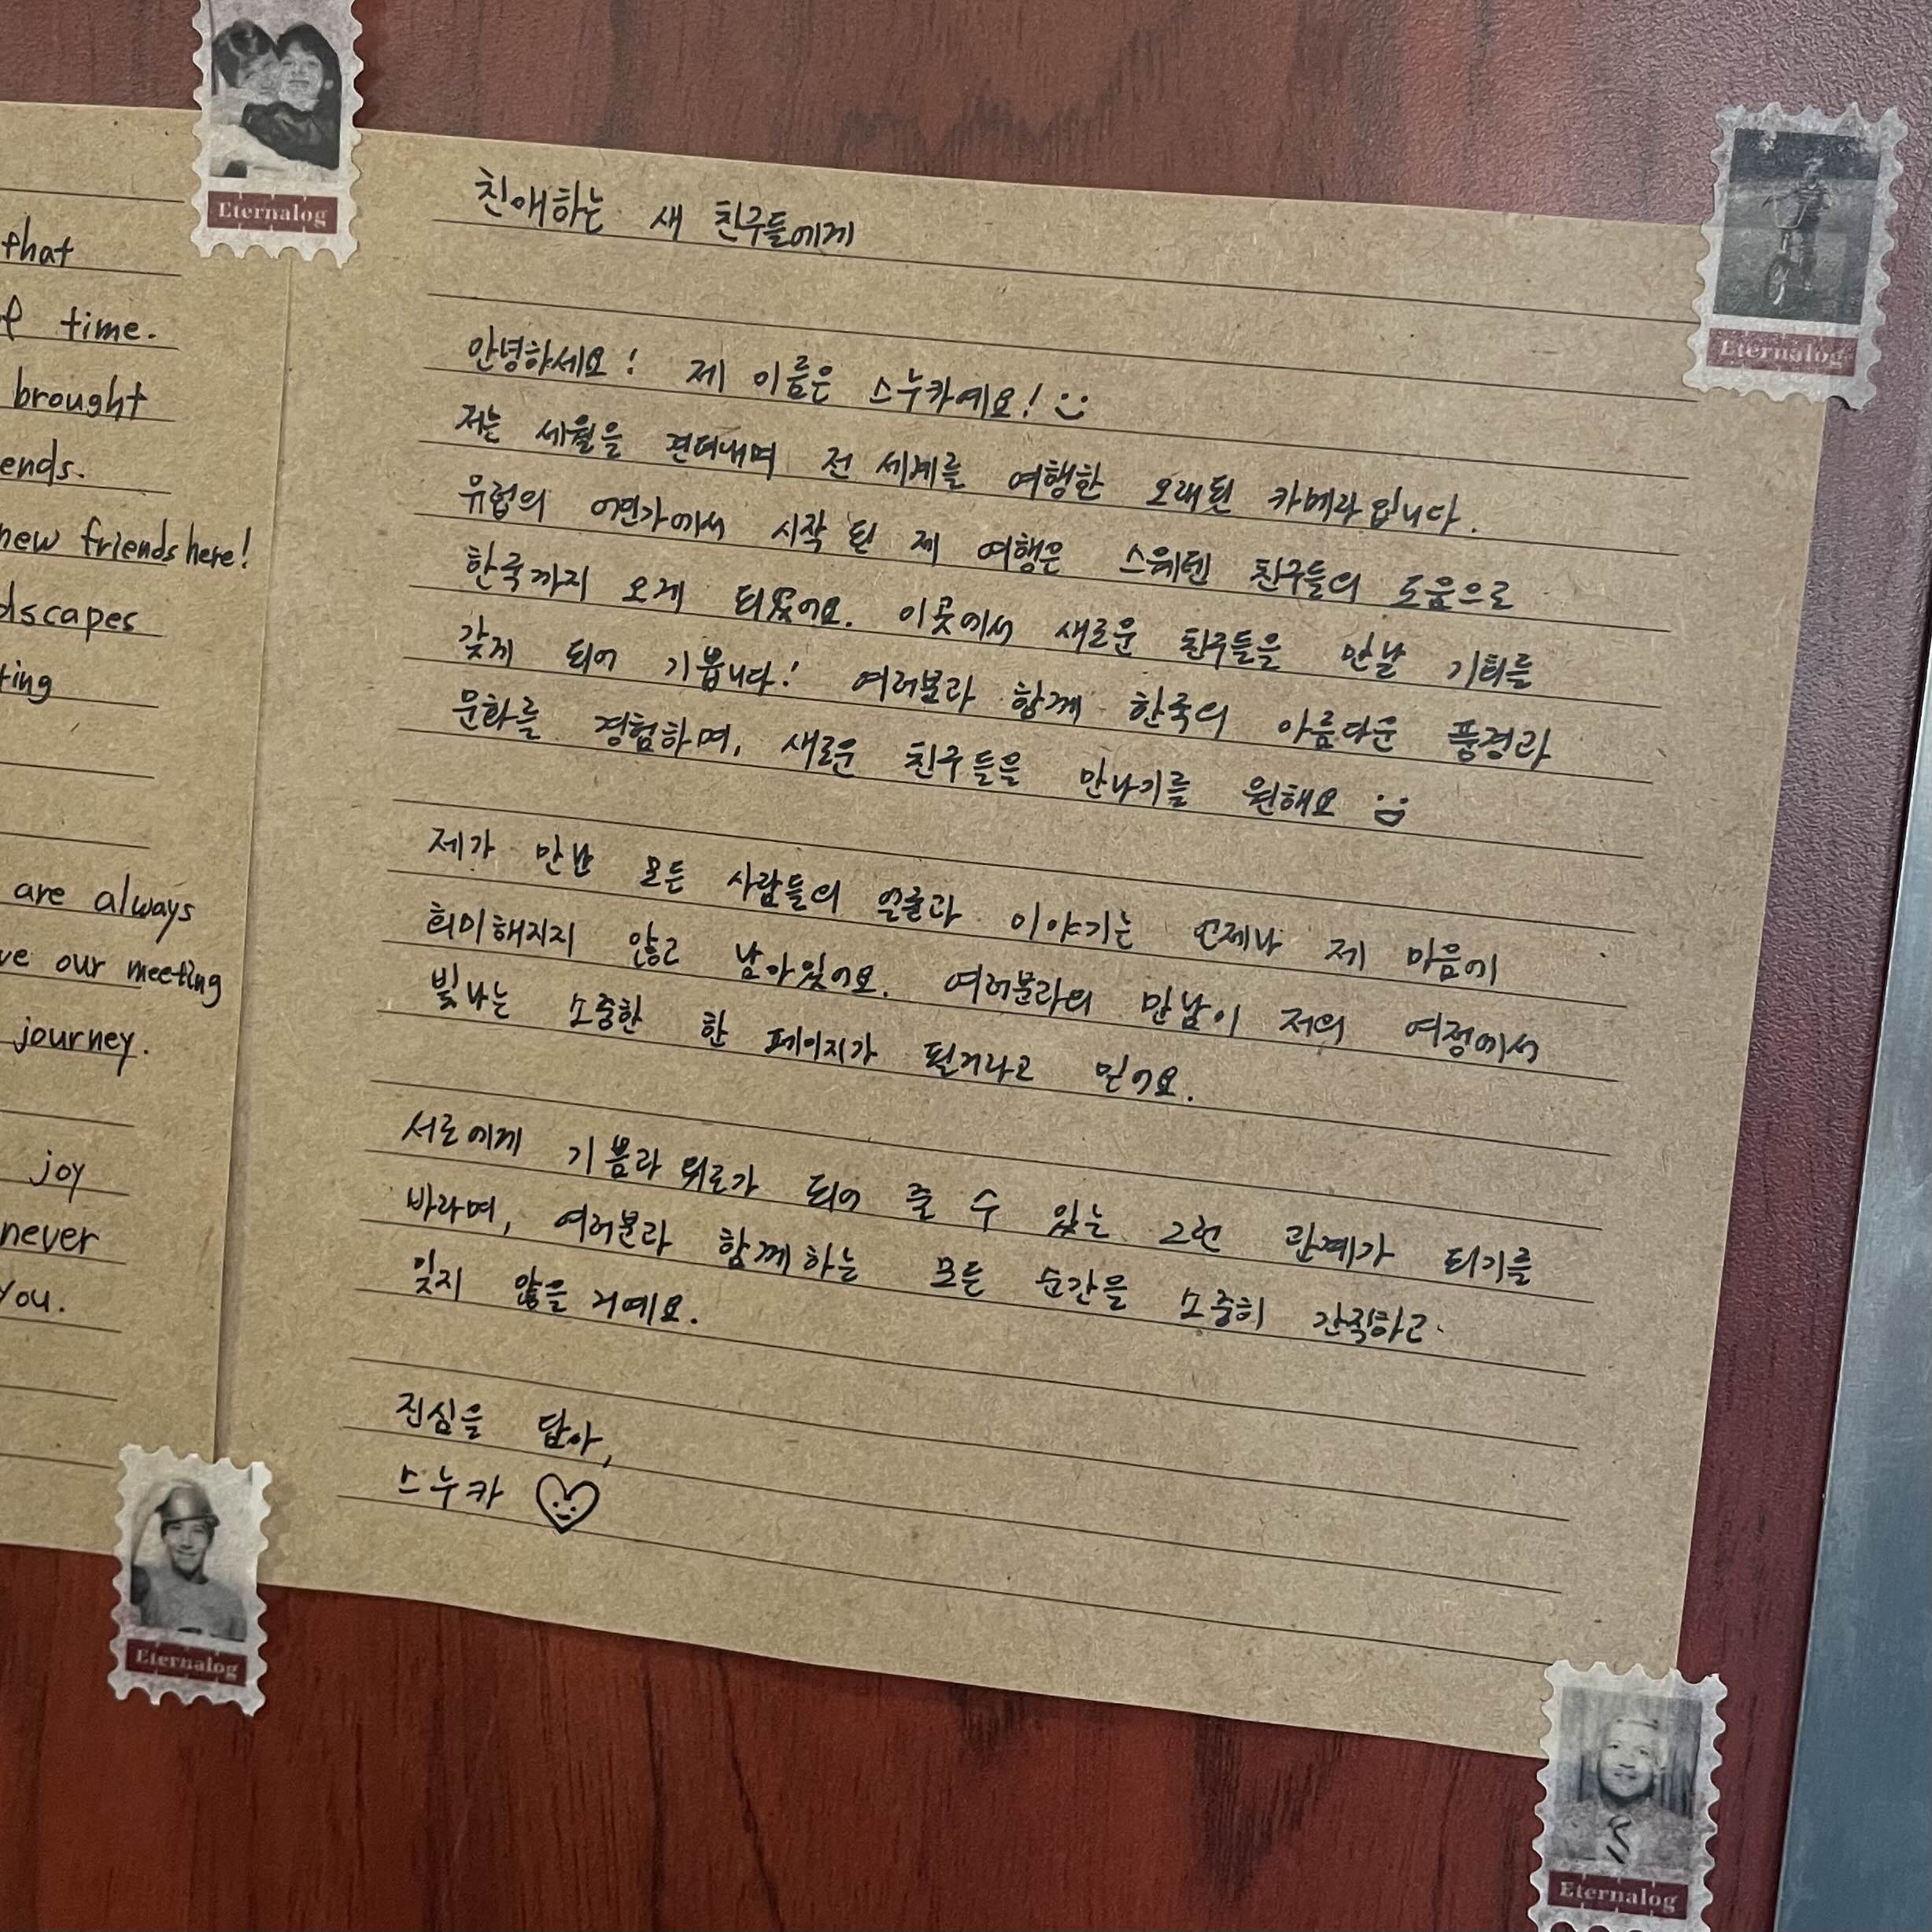 that
time.
brought
ends.
new friends here!
dscapes
ring
are always
ve our meeting
journey.
joy
never
you.
친애하는 새 친구들에게
안녕하세요! 제 이름은 스누카예요! :)
저는 세월을 견뎌내며 전 세계를 여행한 오래된 카메라입니다.
유럽의 어딘가에서 시작된 제 여행은 스웨덴 친구들의 도움으로
한국까지 오게 되었어요. 이곳에서 새로운 친구들을 만날 기회를
갖게 되어 기쁩니다! 여러분과 함께 한국의 아름다운 풍경과
문화를 경험하며, 새로운 친구들을 만나기를 원해요
제가 만난 모든 사람들의 얼굴과 이야기는 언제나 제 마음에
희미해지지 않고 남아있어요. 여러분과의 만남이 저의 여정에서
빛나는 소중한 한 페이지가 될거라고 믿어요.
서로에게 기쁨과 위로가 되어 줄 수 있는 그런 관계가 되기를
바라며, 여러분과 함께하는 모든 순간을 소중히 간직하고
잊지 않을 거예요.
진심을 담아,
스누카 ♡
Eternalog
Eternalog
Eternalog
Eternalog